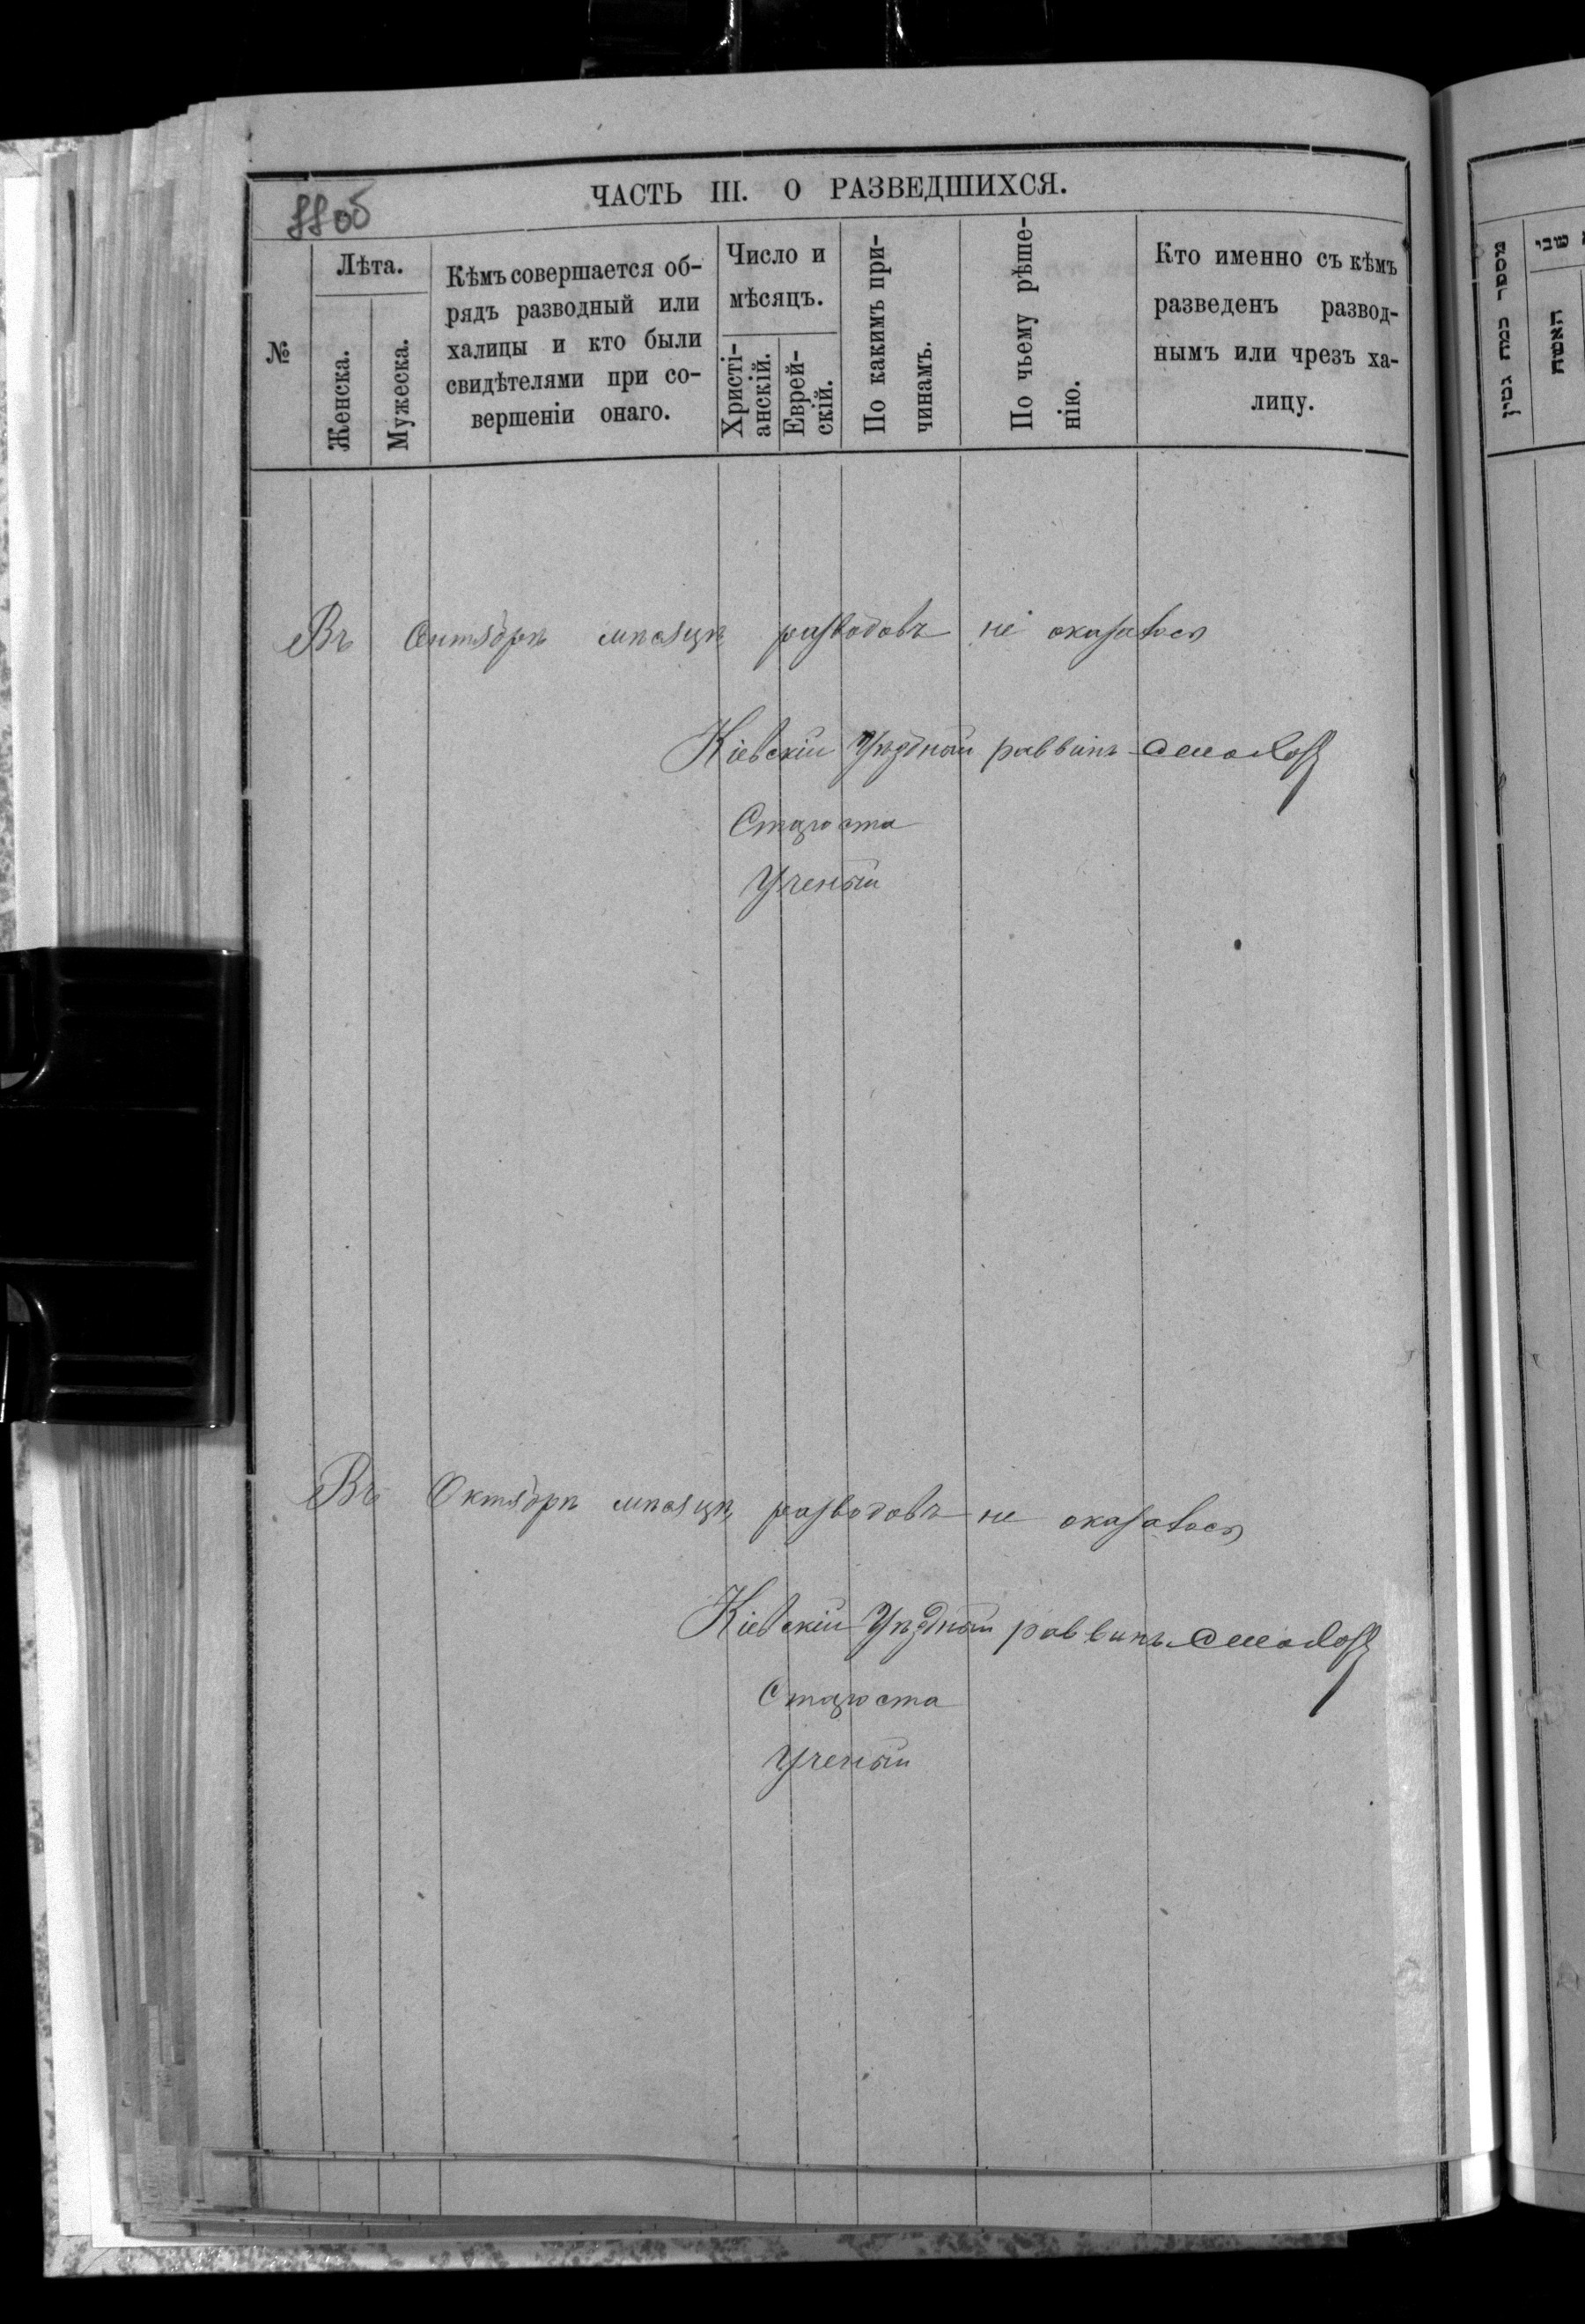 ЧАСТЬ III. О РАЗВЕДШИХСЯ.
№
Лѣта.
Женска.
Мужеска.
Кѣмъ совершается об-
рядъ разводный или
халицы и кто были
свидѣтелями при со-
вершеніи онаго.
Число и
мѣсяцъ.
Христі-
анскій.
Еврей-
скій.
По какимъ при-
чинамъ.
По чьему рѣше-
нію.
Кто именно съ кѣмъ
разведенъ развод-
нымъ или чрезъ ха-
лицу.
מספר כמה גטין
שני
האשה
Въ Сентябрѣ мѣсяцѣ разводовъ не оказалось
Кіевскій Уѣздный раввинъ
Староста
Ученый
Въ Октябрѣ мѣсяцѣ разводовъ не оказалось
Кіевскій Уѣздный раввинъ
Староста
Ученый